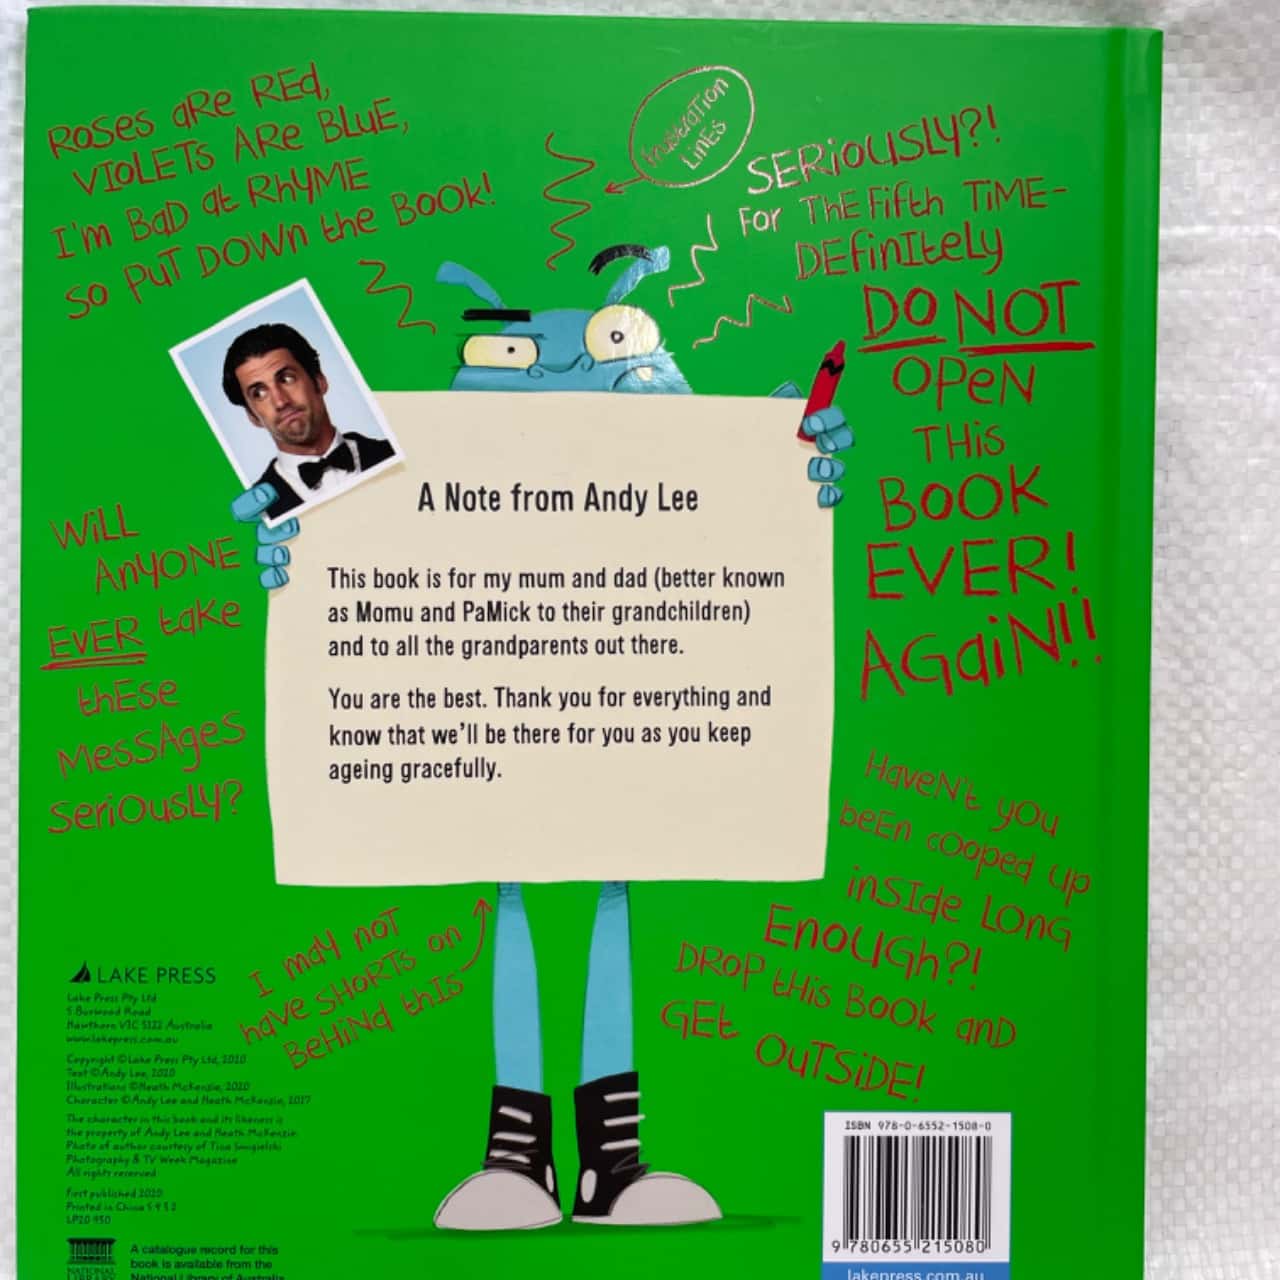 Roses are Red,
Violets are Blue,
I'm Bad at Rhyme
So Put Down the Book!
Frustration
Lines
Seriously?!
For the Fifth Time-
Definitely
Do Not
Open
This
Book
Ever!
Again!!
A Note from Andy Lee
This book is for my mum and dad (better known
as Momu and PaMick to their grandchildren)
and to all the grandparents out there.
You are the best. Thank you for everything and
know that we'll be there for you as you keep
ageing gracefully.
Will
Anyone
Ever take
these
Messages
Seriously?
Haven't you
been cooped up
inside long
Enough?!
Drop this Book and
Get Outside!
I may not
have shorts on
Behind this
LAKE PRESS
Lake Press Pty Ltd
5 Burwood Road
Hawthorn VIC 3122 Australia
www.lakepress.com.au
Copyright ©Lake Press Pty Ltd, 2020
Text ©Andy Lee, 2020
Illustrations ©Heath McKenzie, 2020
Character ©Andy Lee and Heath McKenzie, 2017
The character in this book and its likeness is
the property of Andy Lee and Heath McKenzie
Photo of author courtesy of Tina Smigielski
Photography & TV Week Magazine
All rights reserved
First published 2020
Printed in China 5 4 3 2
LP20 930
NATIONAL
LIBRARY
A catalogue record for this
book is available from the
National Library of Australia
ISBN 978-0-6552-1508-0
9 780655 215080
lakepress.com.au